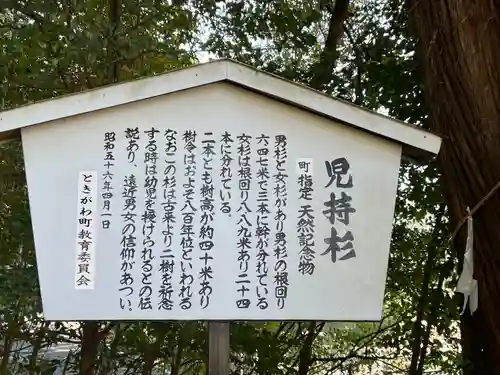 町指定 天然記念物 児持杉
男杉と女杉があり男杉の根回り
六・四七米で三本に幹が分れている
女杉は根回り八・八九米あり二十四
本に分れている。
二本とも樹高が約四十米あり
樹令はおよそ八百年位といわれる
なおこの杉は古来より二樹を祈念
する時は幼児を授けられるとの伝
説あり、遠近男女の信仰があつい。
昭和五十六年四月一日
ときがわ町教育委員会